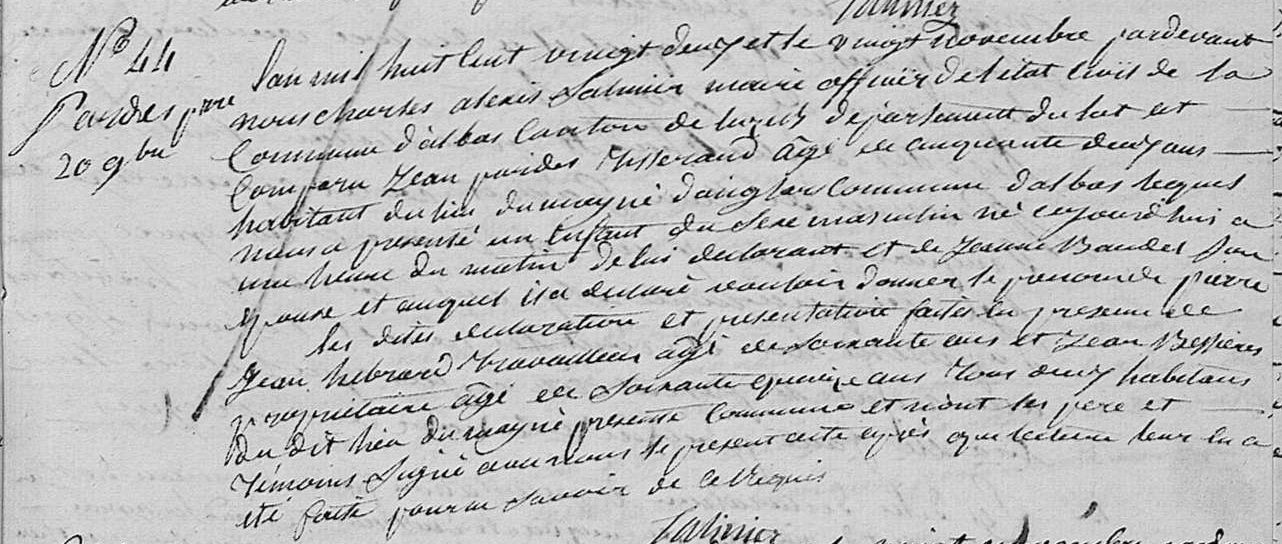 Salinier
N° 44
Pardes pierre
20 9bre
Lan mil huit Cent vingt deux et le vingt novembre pardevant
nous charles alexis Salinier maire officier de letat Civil de la
Commune d'albas Canton de luzech département du lot et
Comparu Jean pardes tisserand âgé de cinquante deux ans
habitant du lieu du mayné d'anglar Commune d'albas lequel
nous a presenté un Enfant du Sexe masculin né cejourdhui a
une heure du matin de lui declarant et de Jeanne Baudel Son
epouse et auquel il a declaré vouloir donner le prenom de pierre
les dites declaration et presentation faites en presence de
Jean hebrard travailleur âgé de Soixante ans et Jean Bessieres
propriétaire âgé de Soixante quinze ans tous deux habitans
du dit lieu du mayné presente Commune et n'ont les pere et
témoins Signé avec nous le present acte après que lecture leur en a
été faite pour ne Savoir de Ce Requis
Salinier
vingt novembre